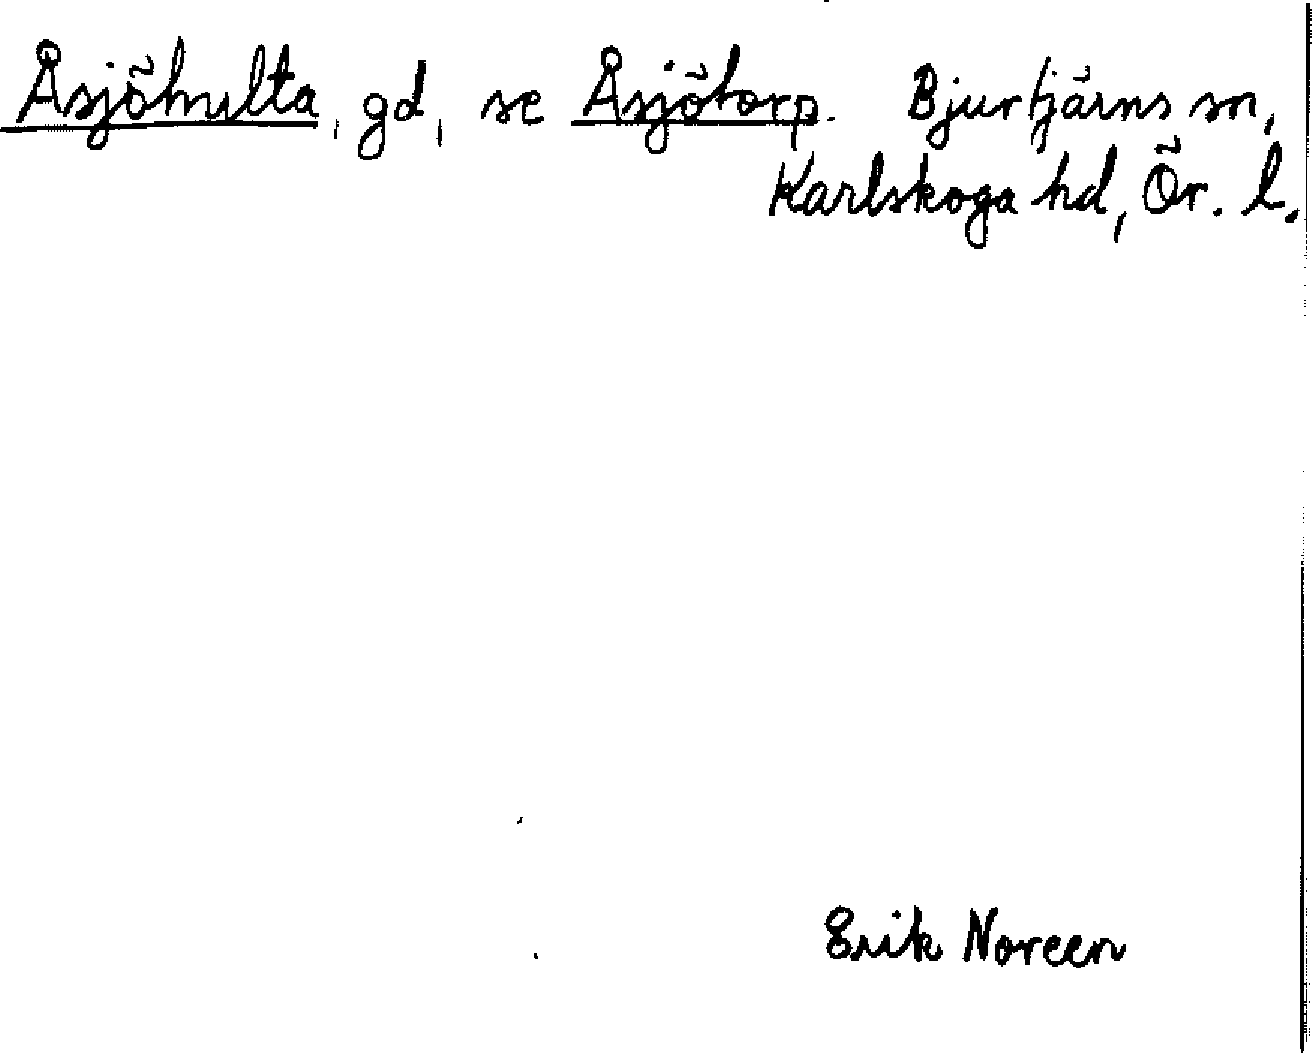 Åsjöhulta, gd, se Åsjötorp. Bjurtjärns sn,
Karlskoga hd, Ör. l.
Erik Noreen